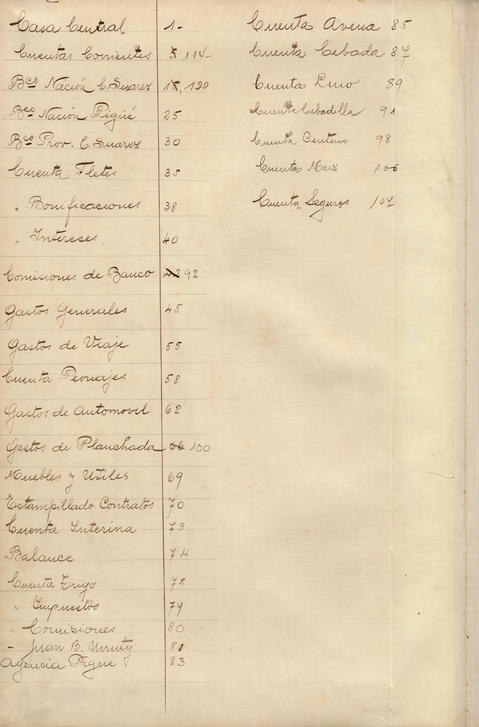 Casa Central 1-
Cuentas Corrientes 5, 114-
Bco Nación C. Suarez 15, 120
Bco Nación Pigüé 25
Bco Prov. C. Suarez 30
Cuenta Fletes 35
" Bonificaciones 38
" Intereses 40
Comisiones de Banco 92
Gastos Generales 45
Gastos de Viaje 55
Cuenta Peonajes 58
Gastos de Automovil 62
Gastos de Planchada 66 100
Muebles y Utiles 69
Estampillado Contratos 70
Cuenta Interina 73
Balance 74
Cuenta Trigo 78
" Impuestos 79
" Comisiones 80
- Juan B. Urruty 81
Agencia Pigue 83
Cuenta Avena 85
Cuenta Cebada 87
Cuenta Lino 89
Cuenta Cebadilla 91
Cuenta Centeno 98
Cuenta Maiz 106
Cuenta Seguros 107